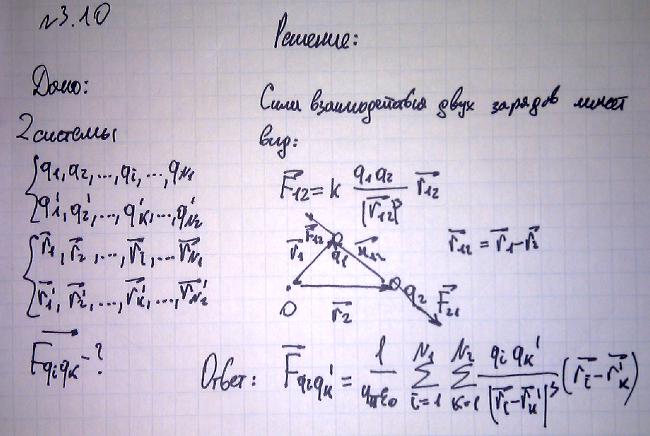 №3.10
Решение:
Дано:
2 системы
q₁, q₂, ..., qᵢ, ..., q_N₁
q₁', q₂', ..., qₖ', ..., q'_N₂
r⃗₁, r⃗₂, ..., r⃗ᵢ, ..., r⃗_N₁
r⃗₁', r⃗₂', ..., r⃗ₖ', ..., r⃗_N₂'
F⃗qᵢqₖ - ?
Сила взаимодействия двух зарядов имеет
вид:
F⃗₁₂ = k q₁q₂ / |r⃗₁₂|³ r⃗₁₂
F⃗₁₂ q₁ r⃗₁₂
r⃗₁
r⃗₁₂ = r⃗₁ - r⃗₂
O r⃗₂ q₂ F⃗₂₁
Ответ: F⃗qᵢqₖ' = 1/(4πε₀) Σ_{i=1}^{N₁} Σ_{k=1}^{N₂} qᵢqₖ' / |r⃗ᵢ - r⃗ₖ'|³ (r⃗ᵢ - r⃗ₖ')